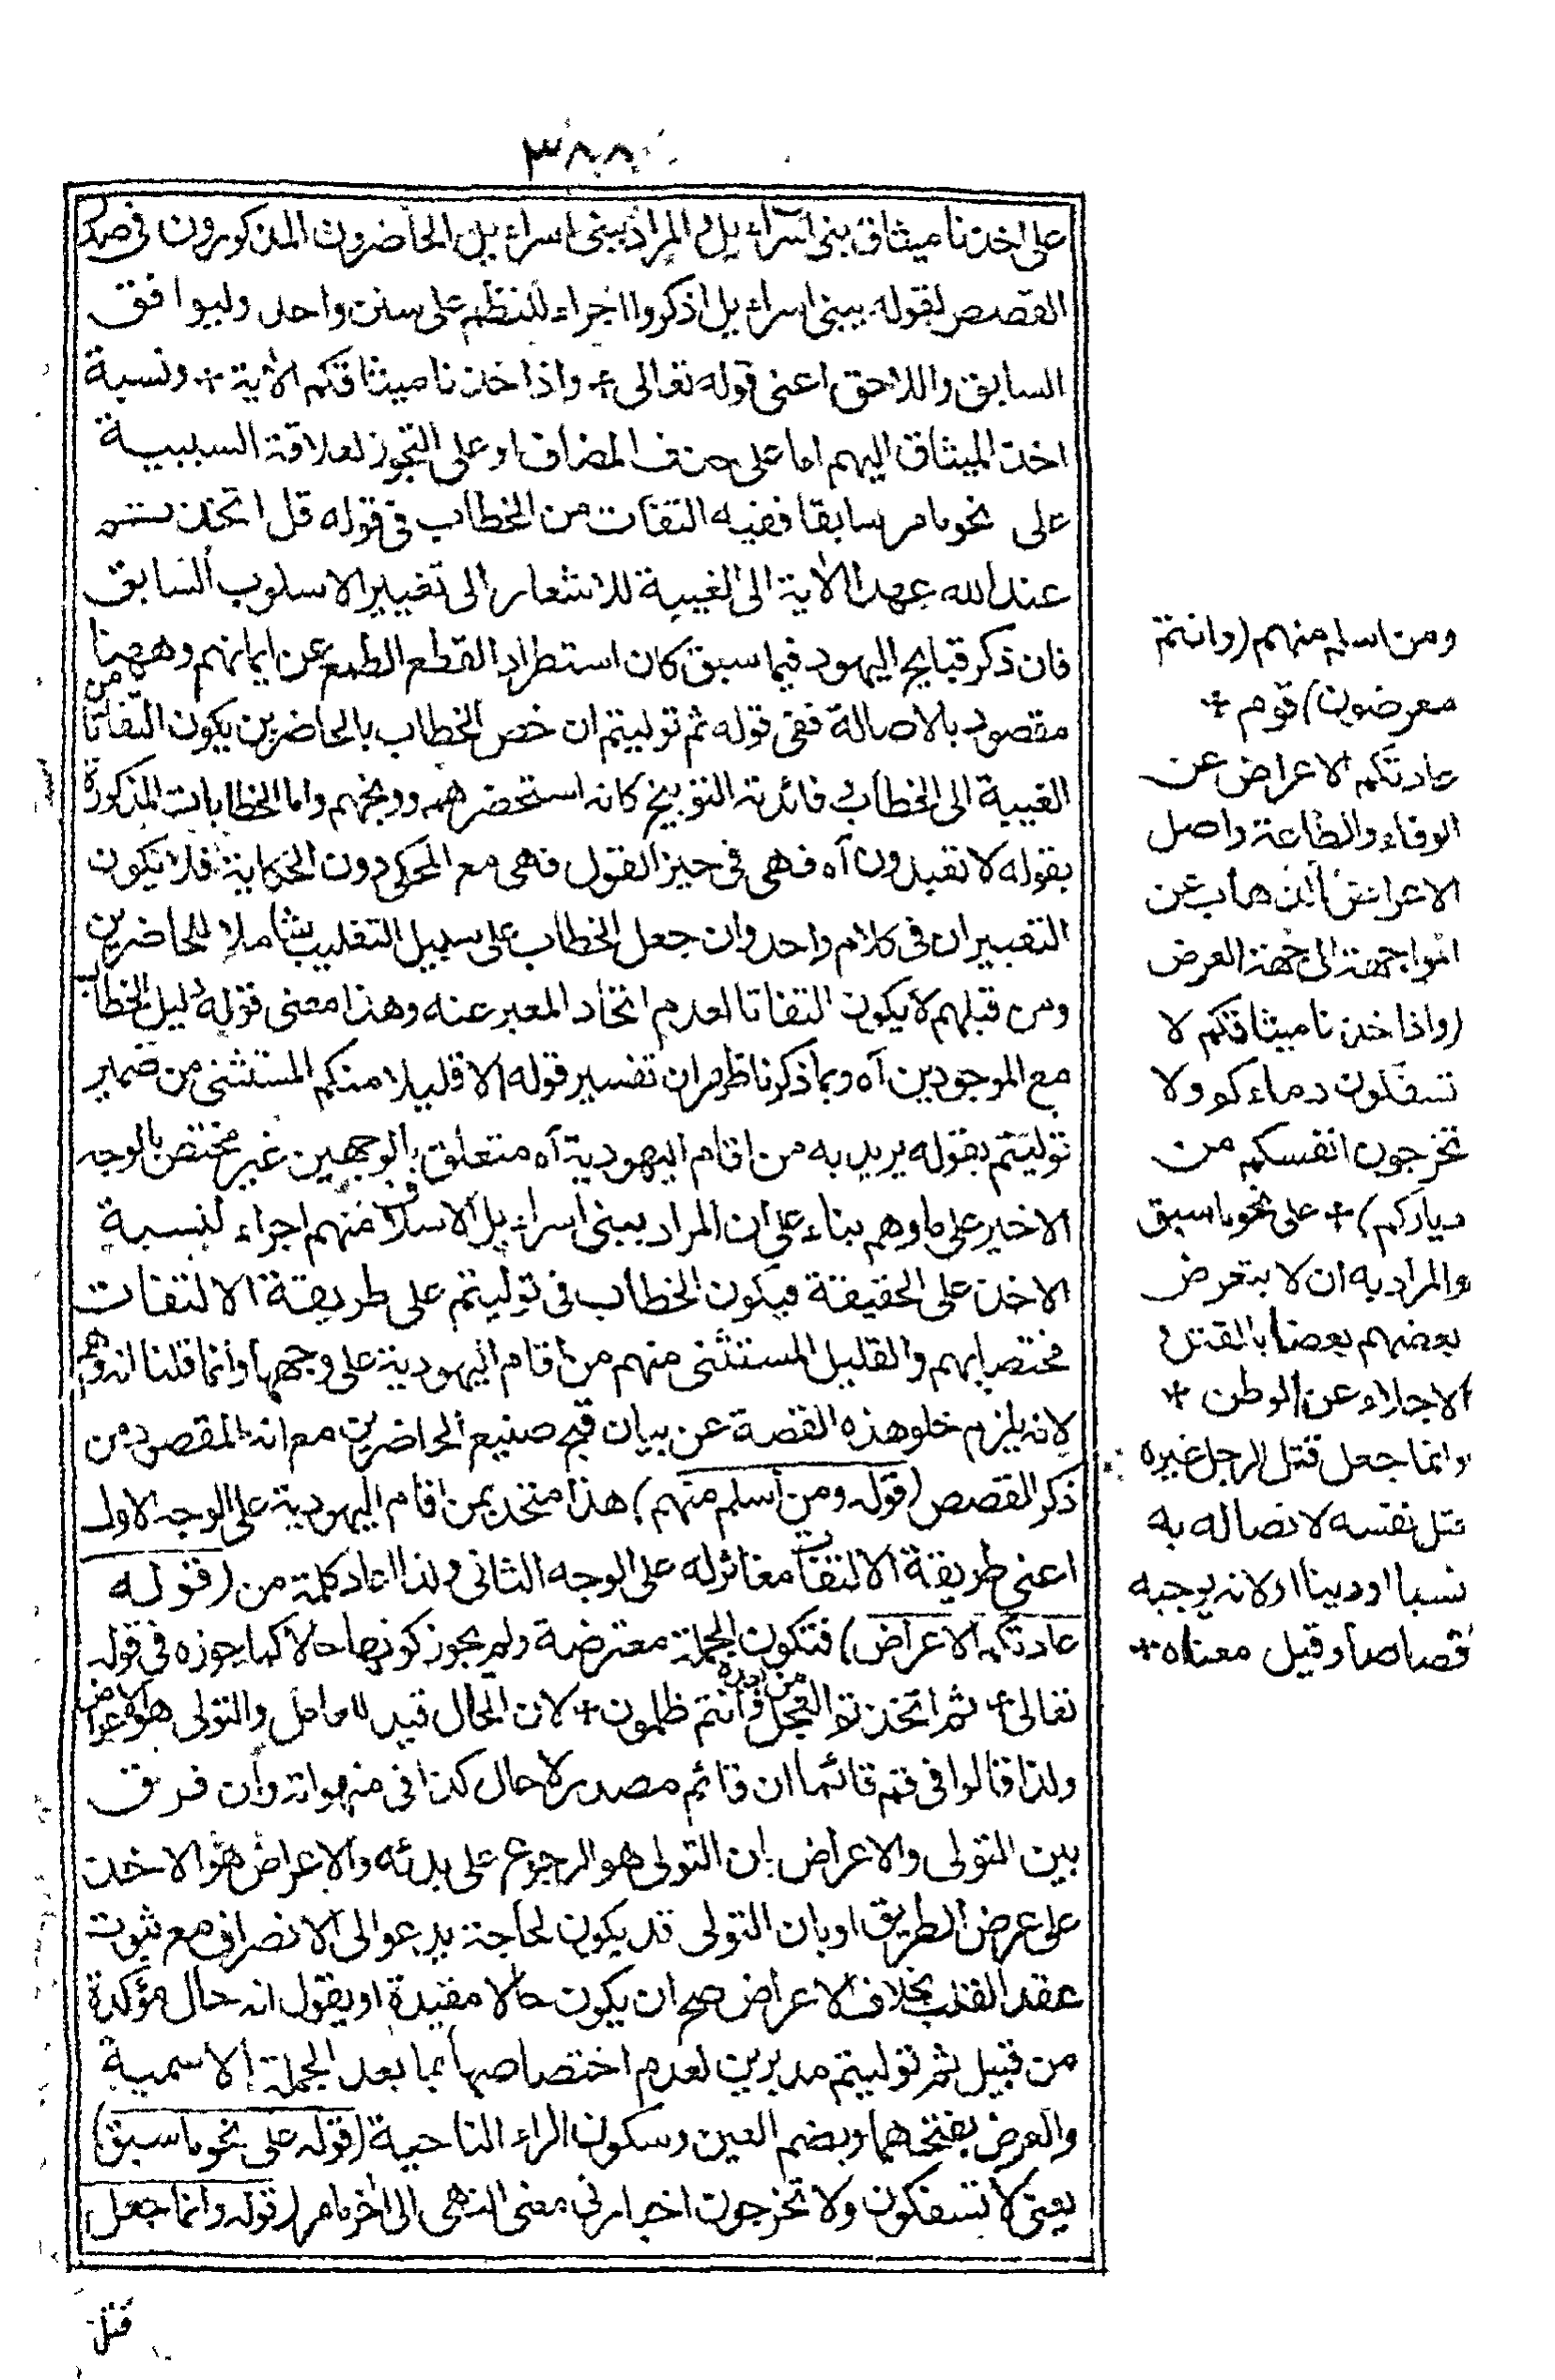 ٣٨٨
على اخذنا ميثاق بنى اسراءيل والمراد ببنى اسراءيل الحاضرون المذكورون فى صدر
القصص لقوله يبنى اسراءيل اذكروا اجراء للنظم على سنن واحد وليوافق
السابق واللاحق اعنى قوله تعالى + واذاخذنا ميثاقكم الأية + ونسبة
اخذ الميثاق اليهم اما على حذف المضاف او على التجوز لعلاقة السببية
على نحو ما مر سابقا ففيه التفات من الخطاب فى قوله قل اتخذتم
عند الله عهدا الأية الى الغيبة للاشعار الى تغيير الاسلوب السابق
فان ذكر قبايح اليهود فيما سبق كان استطراد القطع الطمع عن ايمانهم وههنا
مقصود بالاصالة ففى قوله ثم توليتم ان خص الخطاب بالحاضرين يكون التفاتا من
الغيبة الى الخطاب فائدته التوبيخ كانه استحضرهم ووبخهم واما الخطابات المذكورة
بقوله لا تعبدون آه فهى فى حيز القول فهى مع المحكى دون الحكاية فلا يكون
التعبيران فى كلام واحد وان جعل الخطاب على سبيل التغليب شاملا للحاضرين
ومن قبلهم لا يكون التفاتا لعدم اتحاد المعبر عنه وهذا معنى قوله دليل الخطاب
مع الموجودين آه وبما ذكرنا ظهر ان تفسير قوله الا قليلا منكم المستثنى من ضمير
توليتم بقوله يريد به من اقام اليهودية آه متعلق بالوجهين غير مختص بالوجه
الاخير على ما وهم بناء على ان المراد ببنى اسراءيل الاسلاف منهم اجراء لنسبة
الاخذ على الحقيقة فيكون الخطاب فى توليتم على طريقة الالتفات
مختصا بهم والقليل المستثنى منهم من اقام اليهودية على وجهها وانما قلنا انه وهم
لانه يلزم خلو هذه القصة عن بيان قبح صنيع الحاضرين مع انه المقصود من
ذكر القصص (قوله ومن أسلم منهم) هذا متحد بمن اقام اليهودية على الوجه الاول
اعنى طريقة الالتفات مغائر له على الوجه الثانى ولذا اعاد كلمة من (قوله
عادتكم الاعراض) فتكون الجملة معترضة ولم يجوز كونها حالا كما جوزه فى قوله
تعالى + ثم اتخذتم العجل من بعده وأنتم ظلمون + لان الحال قيد للعامل والتولى هو الاعراض
ولذا قالوا فى قم قائما ان قائم مصدر لا حال كذا فى منهواته وأن فرق
بين التولى والاعراض بان التولى هو الرجوع على بدئه والاعراض هو الاخذ
على عرض الطريق او بان التولى قد يكون لحاجة يدعو الى الانصراف مع ثبوت
عقد القلب بخلاف الاعراض صح ان يكون حالا مقيدة او يقول انه حال مؤكدة
من قبيل ثم توليتم مدبرين لعدم اختصاصها بما بعد الجملة الاسمية
والعرض بفتحهما وبضم العين وسكون الراء الناحية (قوله على نحو ما سبق)
يعنى لا تسفكون ولا تخرجون اخبار فى معنى النهى الى اخر ما مر (قوله وانما جعل
قتل
ومن اسلم منهم (وانتم
معرضون) قوم +
عادتكم الاعراض عن
الوفاء والطاعة واصل
الاعراض الذهاب عن
المواجهة الى جهة العرض
(واذاخذنا ميثاقكم لا
تسفكون دماءكم ولا
تخرجون انفسكم من
دياركم) + على نحو ما سبق
والمراد به ان لا يتعرض
بعضهم بعضا بالقتل و
الاجلاء عن الوطن +
وانما جعل قتل الرجل غيره
قتل نفسه لاتصاله به
نسبا او دينا او لانه يوجبه
قصاصا وقيل معناه +